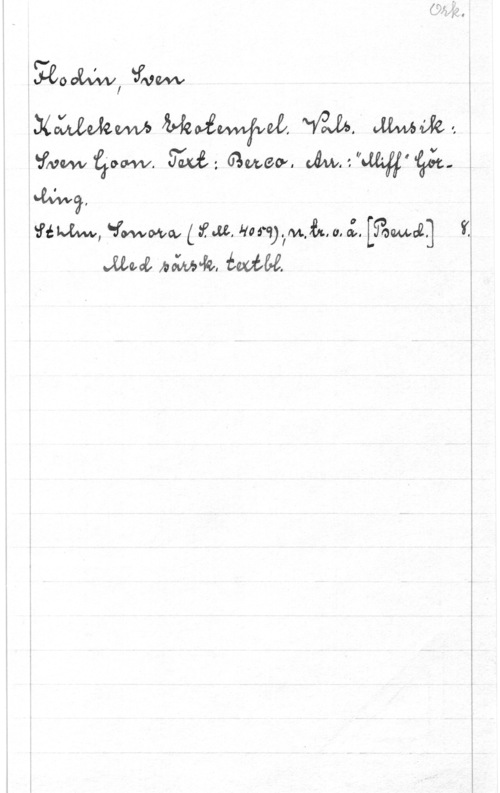 Ork.
Flodin, Sven
Kärlekens Ekotempel. Vals. Musik:
Sven Goon. Text: Berco. Arr.: "Miff" Gör-
ling.
Sthlm, Sonora (S.M. 4059), n.tr.o.å. [Pseud.] 8.
Med särsk. textbl.